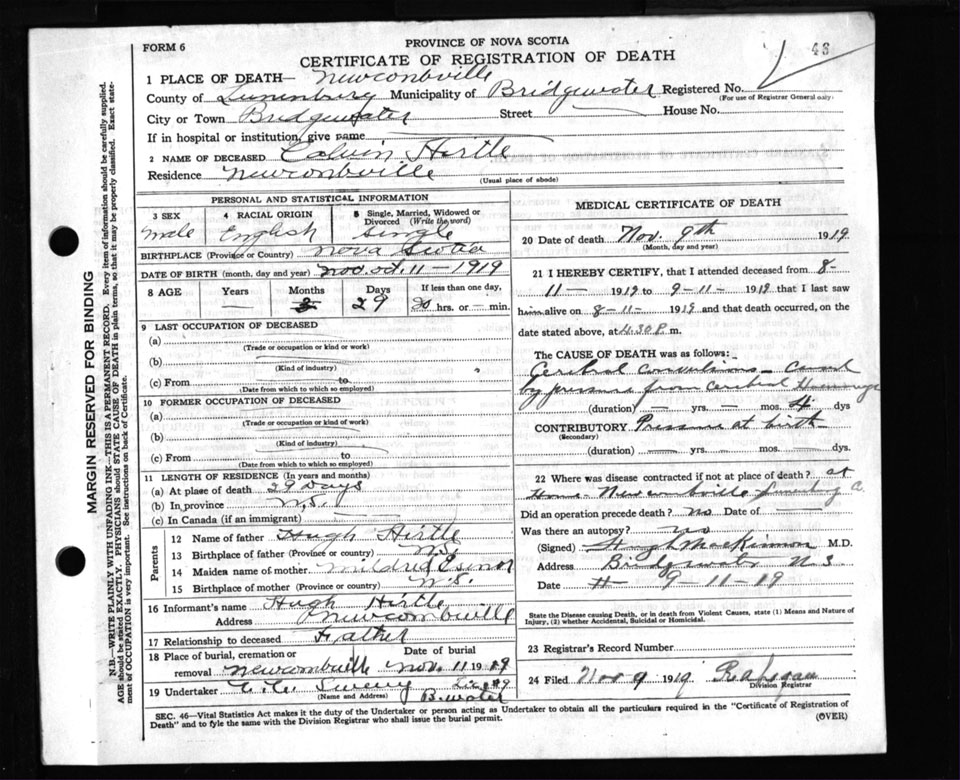 FORM 6
PROVINCE OF NOVA SCOTIA
CERTIFICATE OF REGISTRATION OF DEATH
48
1 PLACE OF DEATH— Newcombville
County of Lunenburg Municipality of Bridgewater Registered No.
(For use of Registrar General only)
City or Town Bridgewater Street House No.
If in hospital or institution, give name
2 NAME OF DECEASED Calvin Hirtle
Residence Newcombville
(Usual place of abode)
PERSONAL AND STATISTICAL INFORMATION
3 SEX 4 RACIAL ORIGIN 5 Single, Married, Widowed or Divorced (Write the word)
Male English Single
BIRTHPLACE (Province or Country) Nova Scotia
DATE OF BIRTH (month, day and year) Oct. 11-1919
8 AGE Years Months Days If less than one day,
— 29 hrs. or — min.
9 LAST OCCUPATION OF DECEASED
(a)
(Trade or occupation or kind of work)
(b)
(Kind of industry)
(c) From to
(Date from which to which so employed)
10 FORMER OCCUPATION OF DECEASED
(a)
(Trade or occupation or kind of work)
(b)
(Kind of industry)
(c) From to
(Date from which to which so employed)
11 LENGTH OF RESIDENCE (In years and months)
(a) At place of death 29 Days
(b) In province N.S.
(c) In Canada (if an immigrant)
Parents
12 Name of father Hugh Hirtle
13 Birthplace of father (Province or country) N.S.
14 Maiden name of mother Mildred
15 Birthplace of mother (Province or country) N.S.
16 Informant's name Hugh Hirtle
Address Newcombville
17 Relationship to deceased Father
18 Place of burial, cremation or removal Date of burial
Newcombville Nov. 11 1919
19 Undertaker
(Name and Address) B.water
MEDICAL CERTIFICATE OF DEATH
20 Date of death Nov. 9th 1919
(Month, day and year)
21 I HEREBY CERTIFY, that I attended deceased from 8-
11- 1919 to 9-11- 1919 that I last saw
him alive on 8-11- 1919 and that death occurred, on the
date stated above, at 4.30 P. m.
The CAUSE OF DEATH was as follows:
Cerebral convulsions – caused
by pressure from cerebral Hemorrhage
(duration) — yrs. — mos. 4 dys
CONTRIBUTORY Pressure at birth
(Secondary)
(duration) — yrs. — mos. — dys.
22 Where was disease contracted if not at place of death? at
Home Newcombville Lunenburg Co.
Did an operation precede death? no Date of —
Was there an autopsy? no
(Signed) Hugh MacKinnon M.D.
Address Bridgewater N S
Date 9-11-19
State the Disease causing Death, or in death from Violent Causes, state (1) Means and Nature of
Injury, (2) whether Accidental, Suicidal or Homicidal.
23 Registrar's Record Number
24 Filed Nov 9 1919
Division Registrar
SEC. 46—Vital Statistics Act makes it the duty of the Undertaker or person acting as Undertaker to obtain all the particulars required in the "Certificate of Registration of
Death" and to fyle the same with the Division Registrar who shall issue the burial permit.
(OVER)
MARGIN RESERVED FOR BINDING
N.B.—WRITE PLAINLY WITH UNFADING INK—THIS IS A PERMANENT RECORD. Every item of information should be carefully supplied.
AGE should be stated EXACTLY. PHYSICIANS should STATE CAUSE OF DEATH in plain terms, so that it may be properly classified. Exact statement of OCCUPATION is very important. See instructions on back of Certificate.